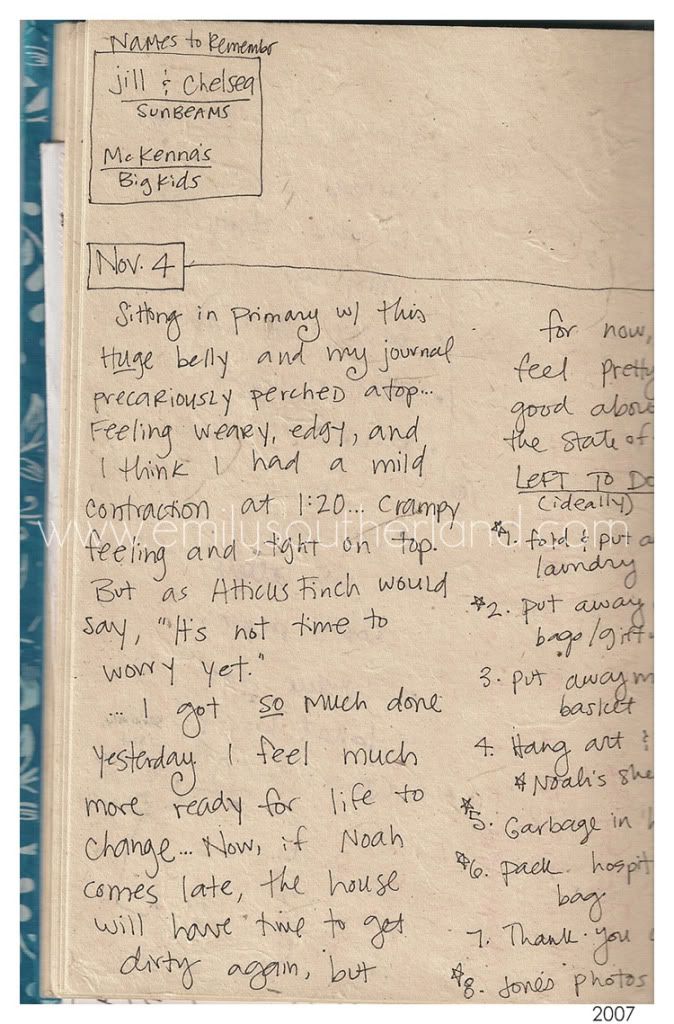 Names to Remember
Jill & Chelsea
SUNBEAMS
McKenna's
Big Kids
Nov. 4
Sitting in primary w/ this
Huge belly and my journal
precariously perched atop...
Feeling weary, edgy, and
I think I had a mild
contraction at 1:20... Crampy
feeling and tight on top.
But as Atticus Finch would
say, "It's not time to
worry yet."
... I got so much done
yesterday. I feel much
more ready for life to
change... Now, if Noah
comes late, the house
will have time to get
dirty again, but
for now,
feel pretty
good about
the state of
LEFT TO DO
(ideally)
☆1. fold & put a
laundry
☆2. put away
bags/gift
3. put away m
basket
4. Hang art &
☆ Noah's She
☆5. Garbage in
☆6. pack hospit
bag
7. Thank you
☆8. Jones photos
www.emilysoutherland.com
2007